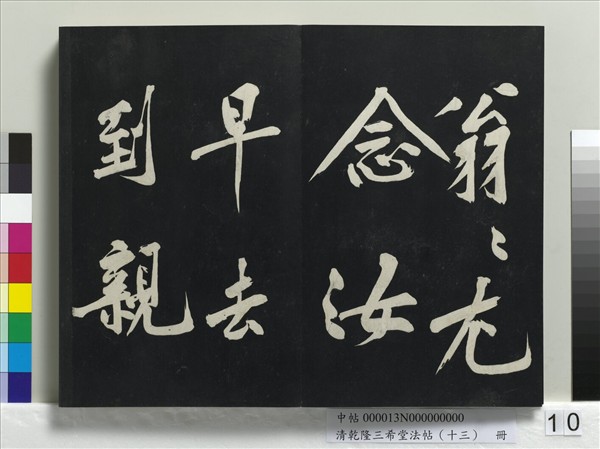 翁〻尤
念汝
早去
到親
中帖 000013N000000000
清乾隆三希堂法帖（十三） 冊
10